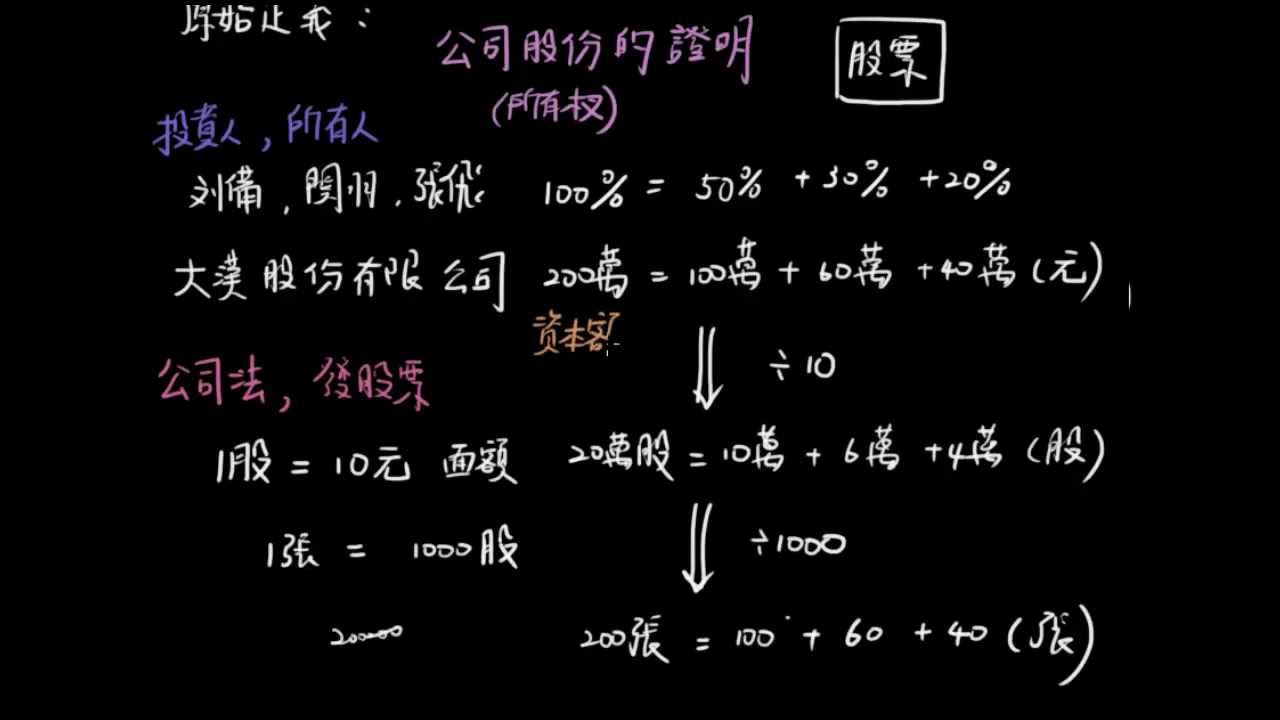 原始定義：
公司股份的證明
股票
(所有权)
投資人，所有人
刘備，関羽．張飛 100% = 50% + 30% + 20%
大漢股份有限公司 200萬 = 100萬 + 60萬 + 40萬 (元)
资本額
÷10
公司法，發股票
1股 = 10元 面額 20萬股 = 10萬 + 6萬 + 4萬 (股)
1張 = 1000股
÷1000
200000
200張 = 100 + 60 + 40 (張)